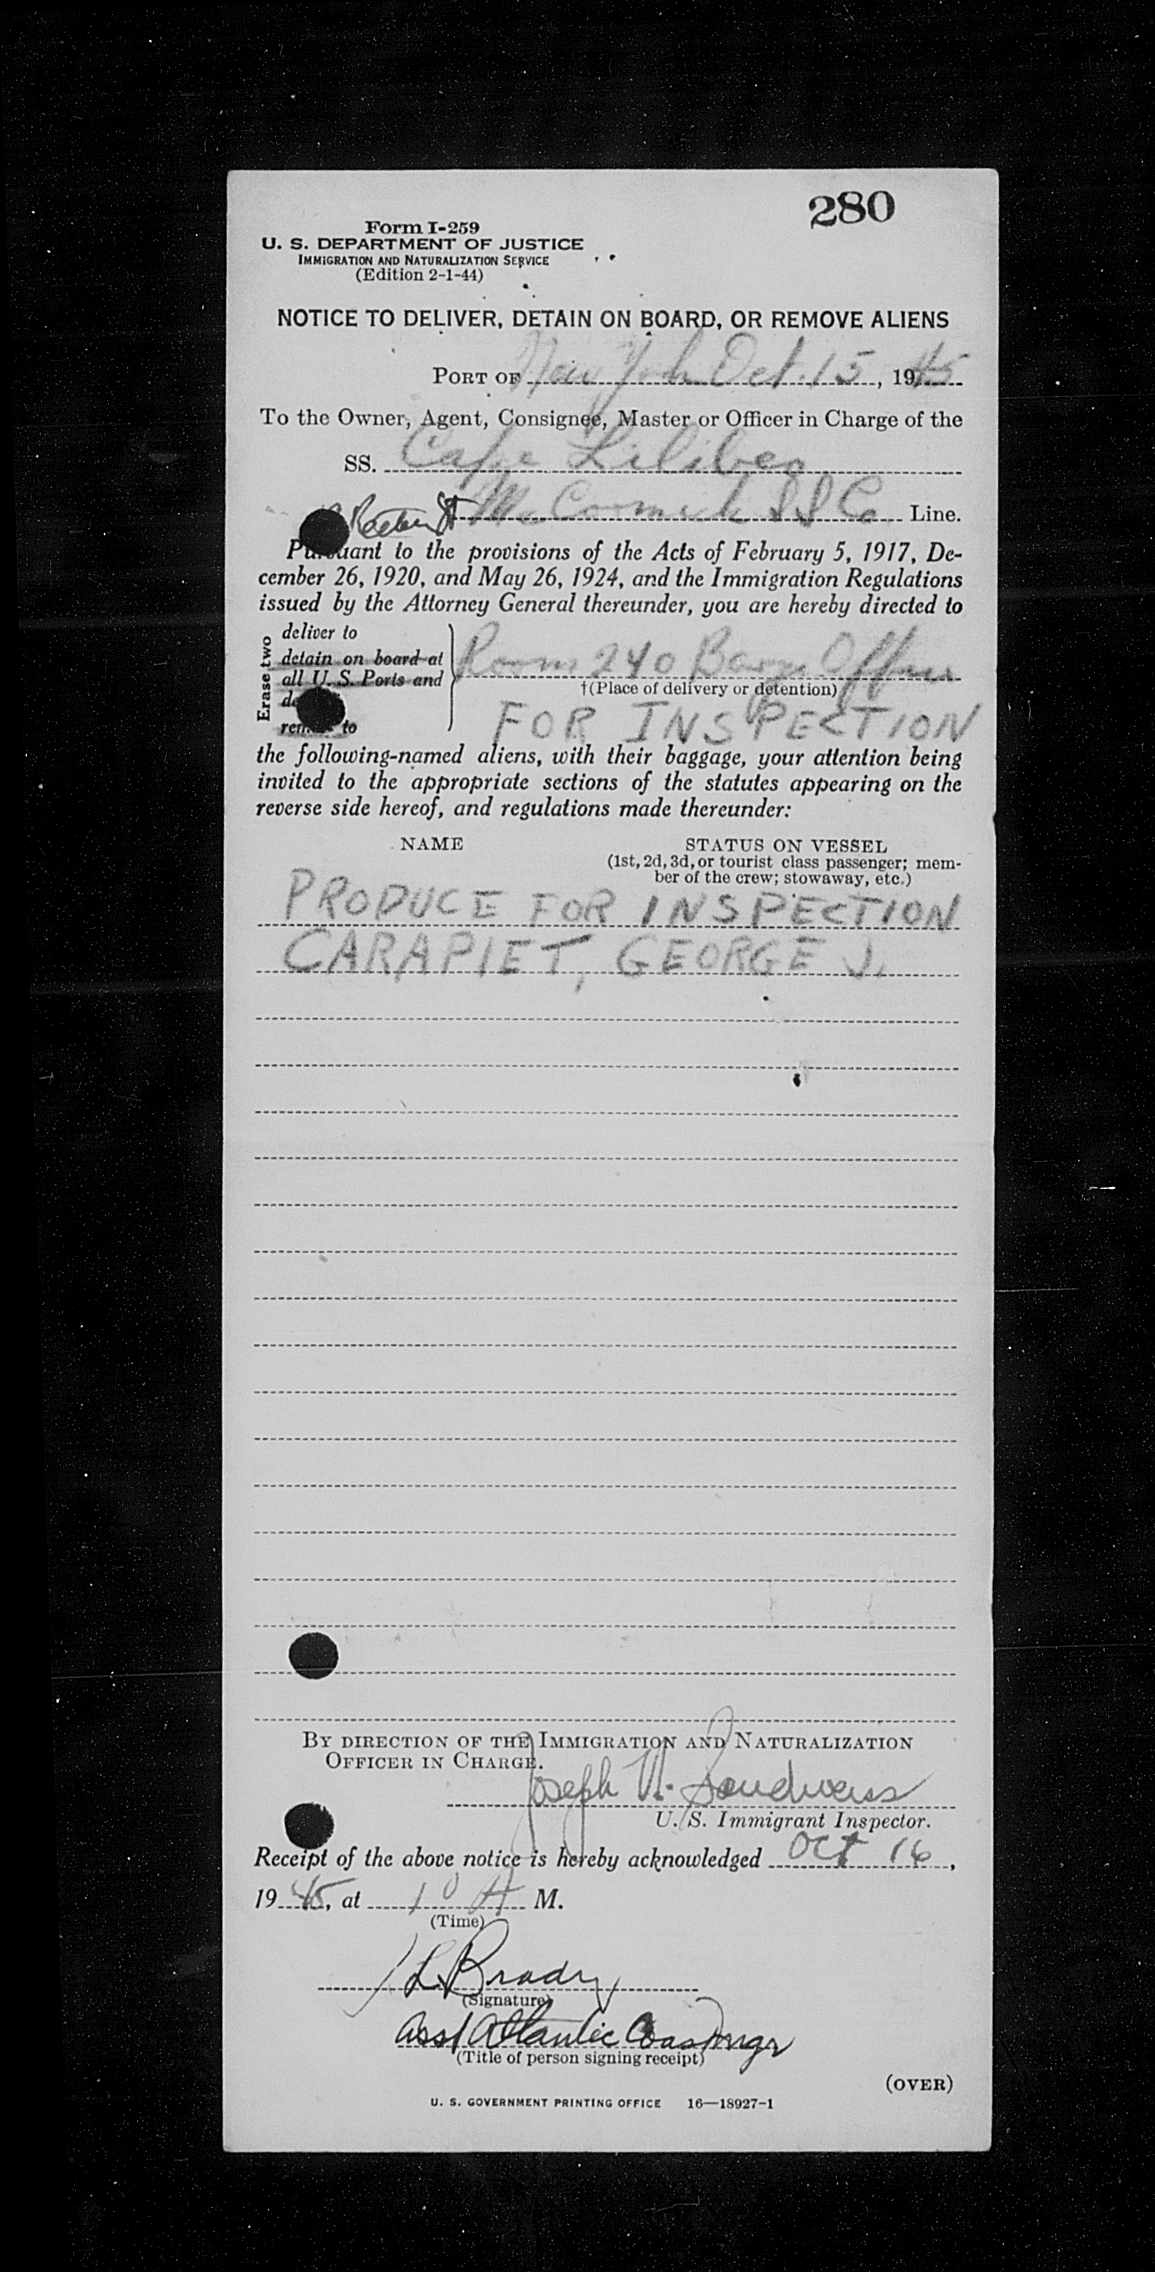 280
Form I-259
U. S. DEPARTMENT OF JUSTICE
IMMIGRATION AND NATURALIZATION SERVICE
(Edition 2-1-44)
NOTICE TO DELIVER, DETAIN ON BOARD, OR REMOVE ALIENS
PORT OF New York Oct. 15, 1945
To the Owner, Agent, Consignee, Master or Officer in Charge of the
SS. Cape Lilibeo
McCormick SS Co. Line.
Pursuant to the provisions of the Acts of February 5, 1917, De-
cember 26, 1920, and May 26, 1924, and the Immigration Regulations
issued by the Attorney General thereunder, you are hereby directed to
Erase two
deliver to
detain on board at
all U. S. Ports and
remove to
Room 240 Barge Office
†(Place of delivery or detention)
FOR INSPECTION
the following-named aliens, with their baggage, your attention being
invited to the appropriate sections of the statutes appearing on the
reverse side hereof, and regulations made thereunder:
NAME STATUS ON VESSEL
(1st, 2d, 3d, or tourist class passenger; mem-
ber of the crew; stowaway, etc.)
PRODUCE FOR INSPECTION
CARAPIET, GEORGE J.
BY DIRECTION OF THE IMMIGRATION AND NATURALIZATION
OFFICER IN CHARGE.
Joseph W. Sandweiss
U. S. Immigrant Inspector.
Receipt of the above notice is hereby acknowledged Oct 16,
1945, at 10 A M.
(Time)
L Brady
(Signature)
Asst Atlantic Coast Mgr
(Title of person signing receipt)
(OVER)
U. S. GOVERNMENT PRINTING OFFICE 16—18927-1